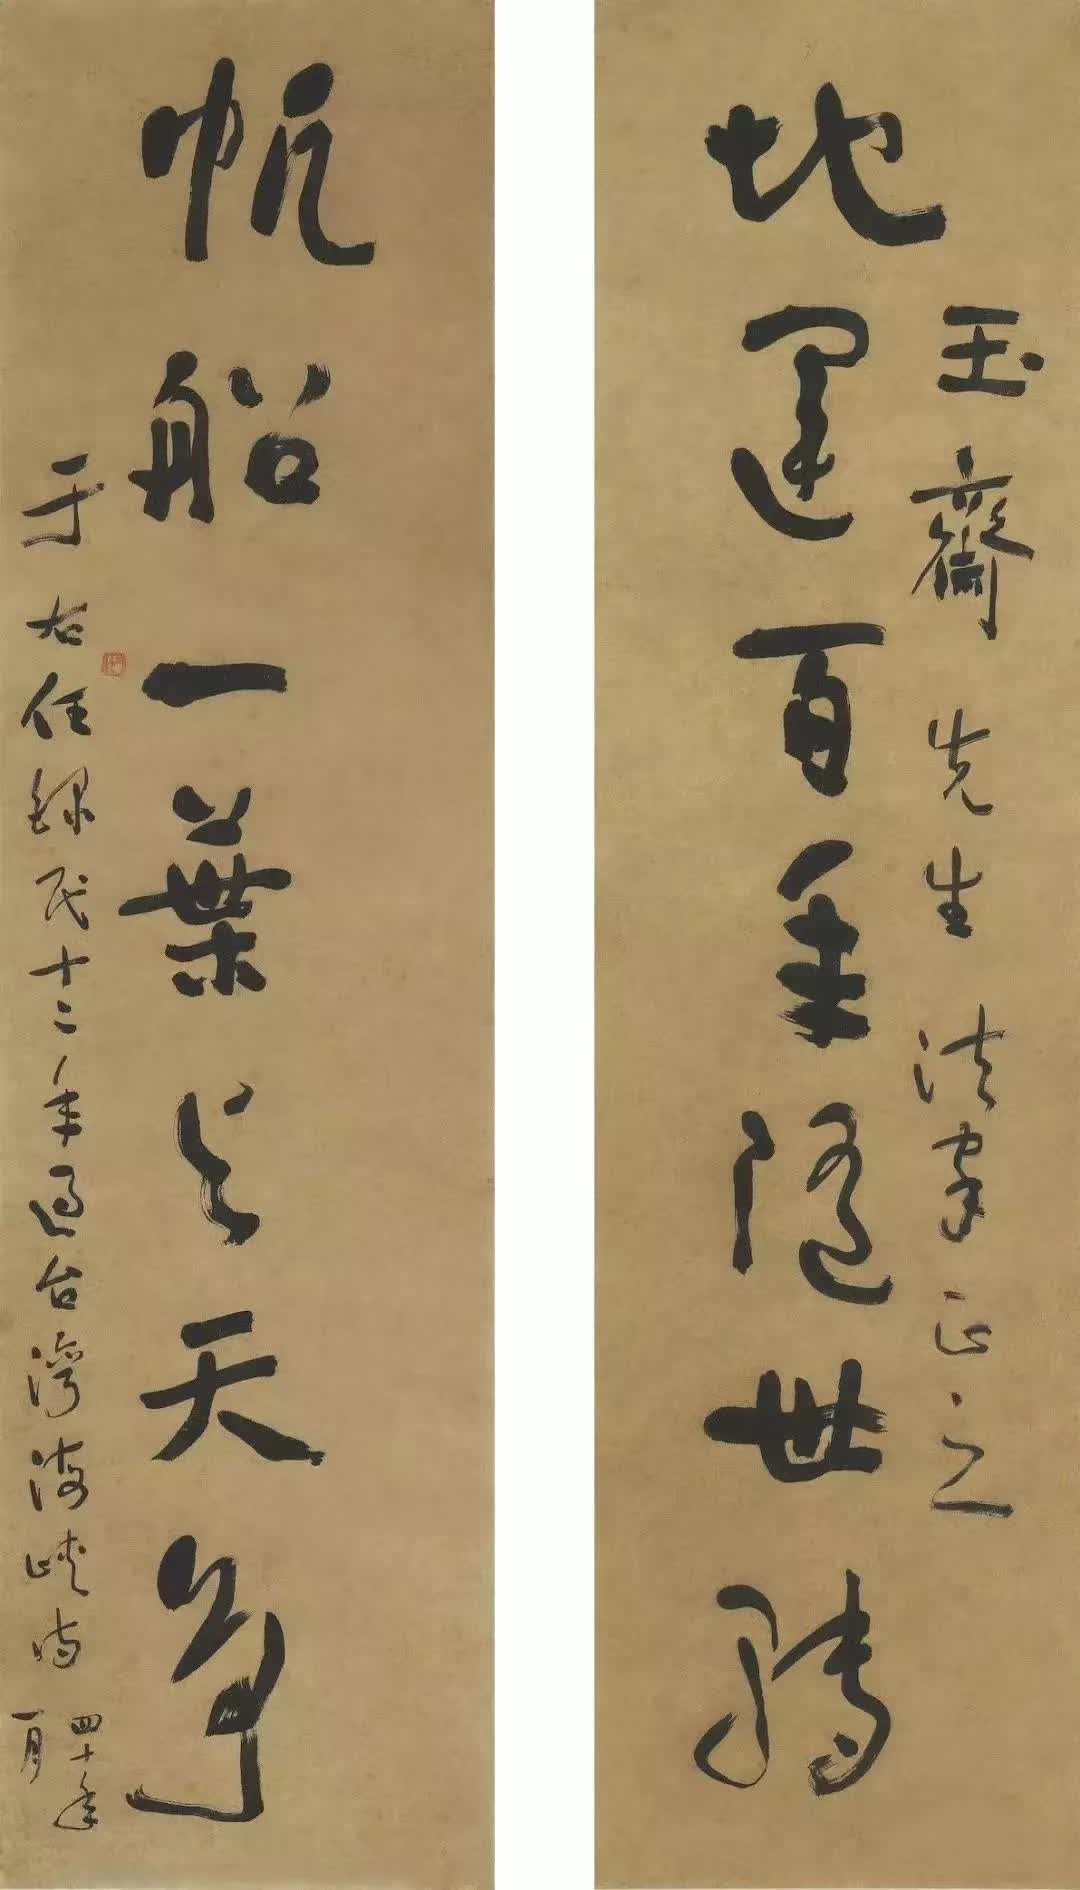 地運百年隨世轉
玉齋先生法家正之
帆船一葉与天爭
于右任錄民十二年過台灣海峽詩
四十年
一月